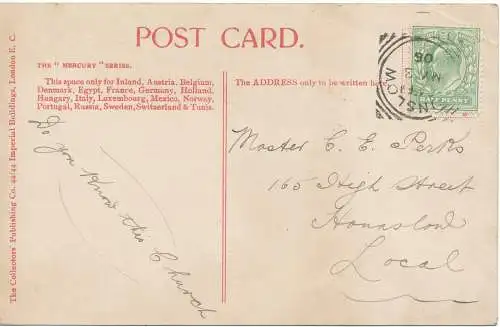 POST CARD.
THE "MERCURY" SERIES.
This space only for Inland, Austria, Belgium,
Denmark, Egypt, France, Germany, Holland,
Hungary, Italy, Luxembourg, Mexico, Norway,
Portugal, Russia, Sweden, Switzerland & Tunis.
The ADDRESS only to be written here
The Collectors' Publishing Co. 42/44 Imperial Buildings, London E.C.
Do you know this Church
Master C. E. Perks
165 High Street
Hounslow
Local
HALF PENNY